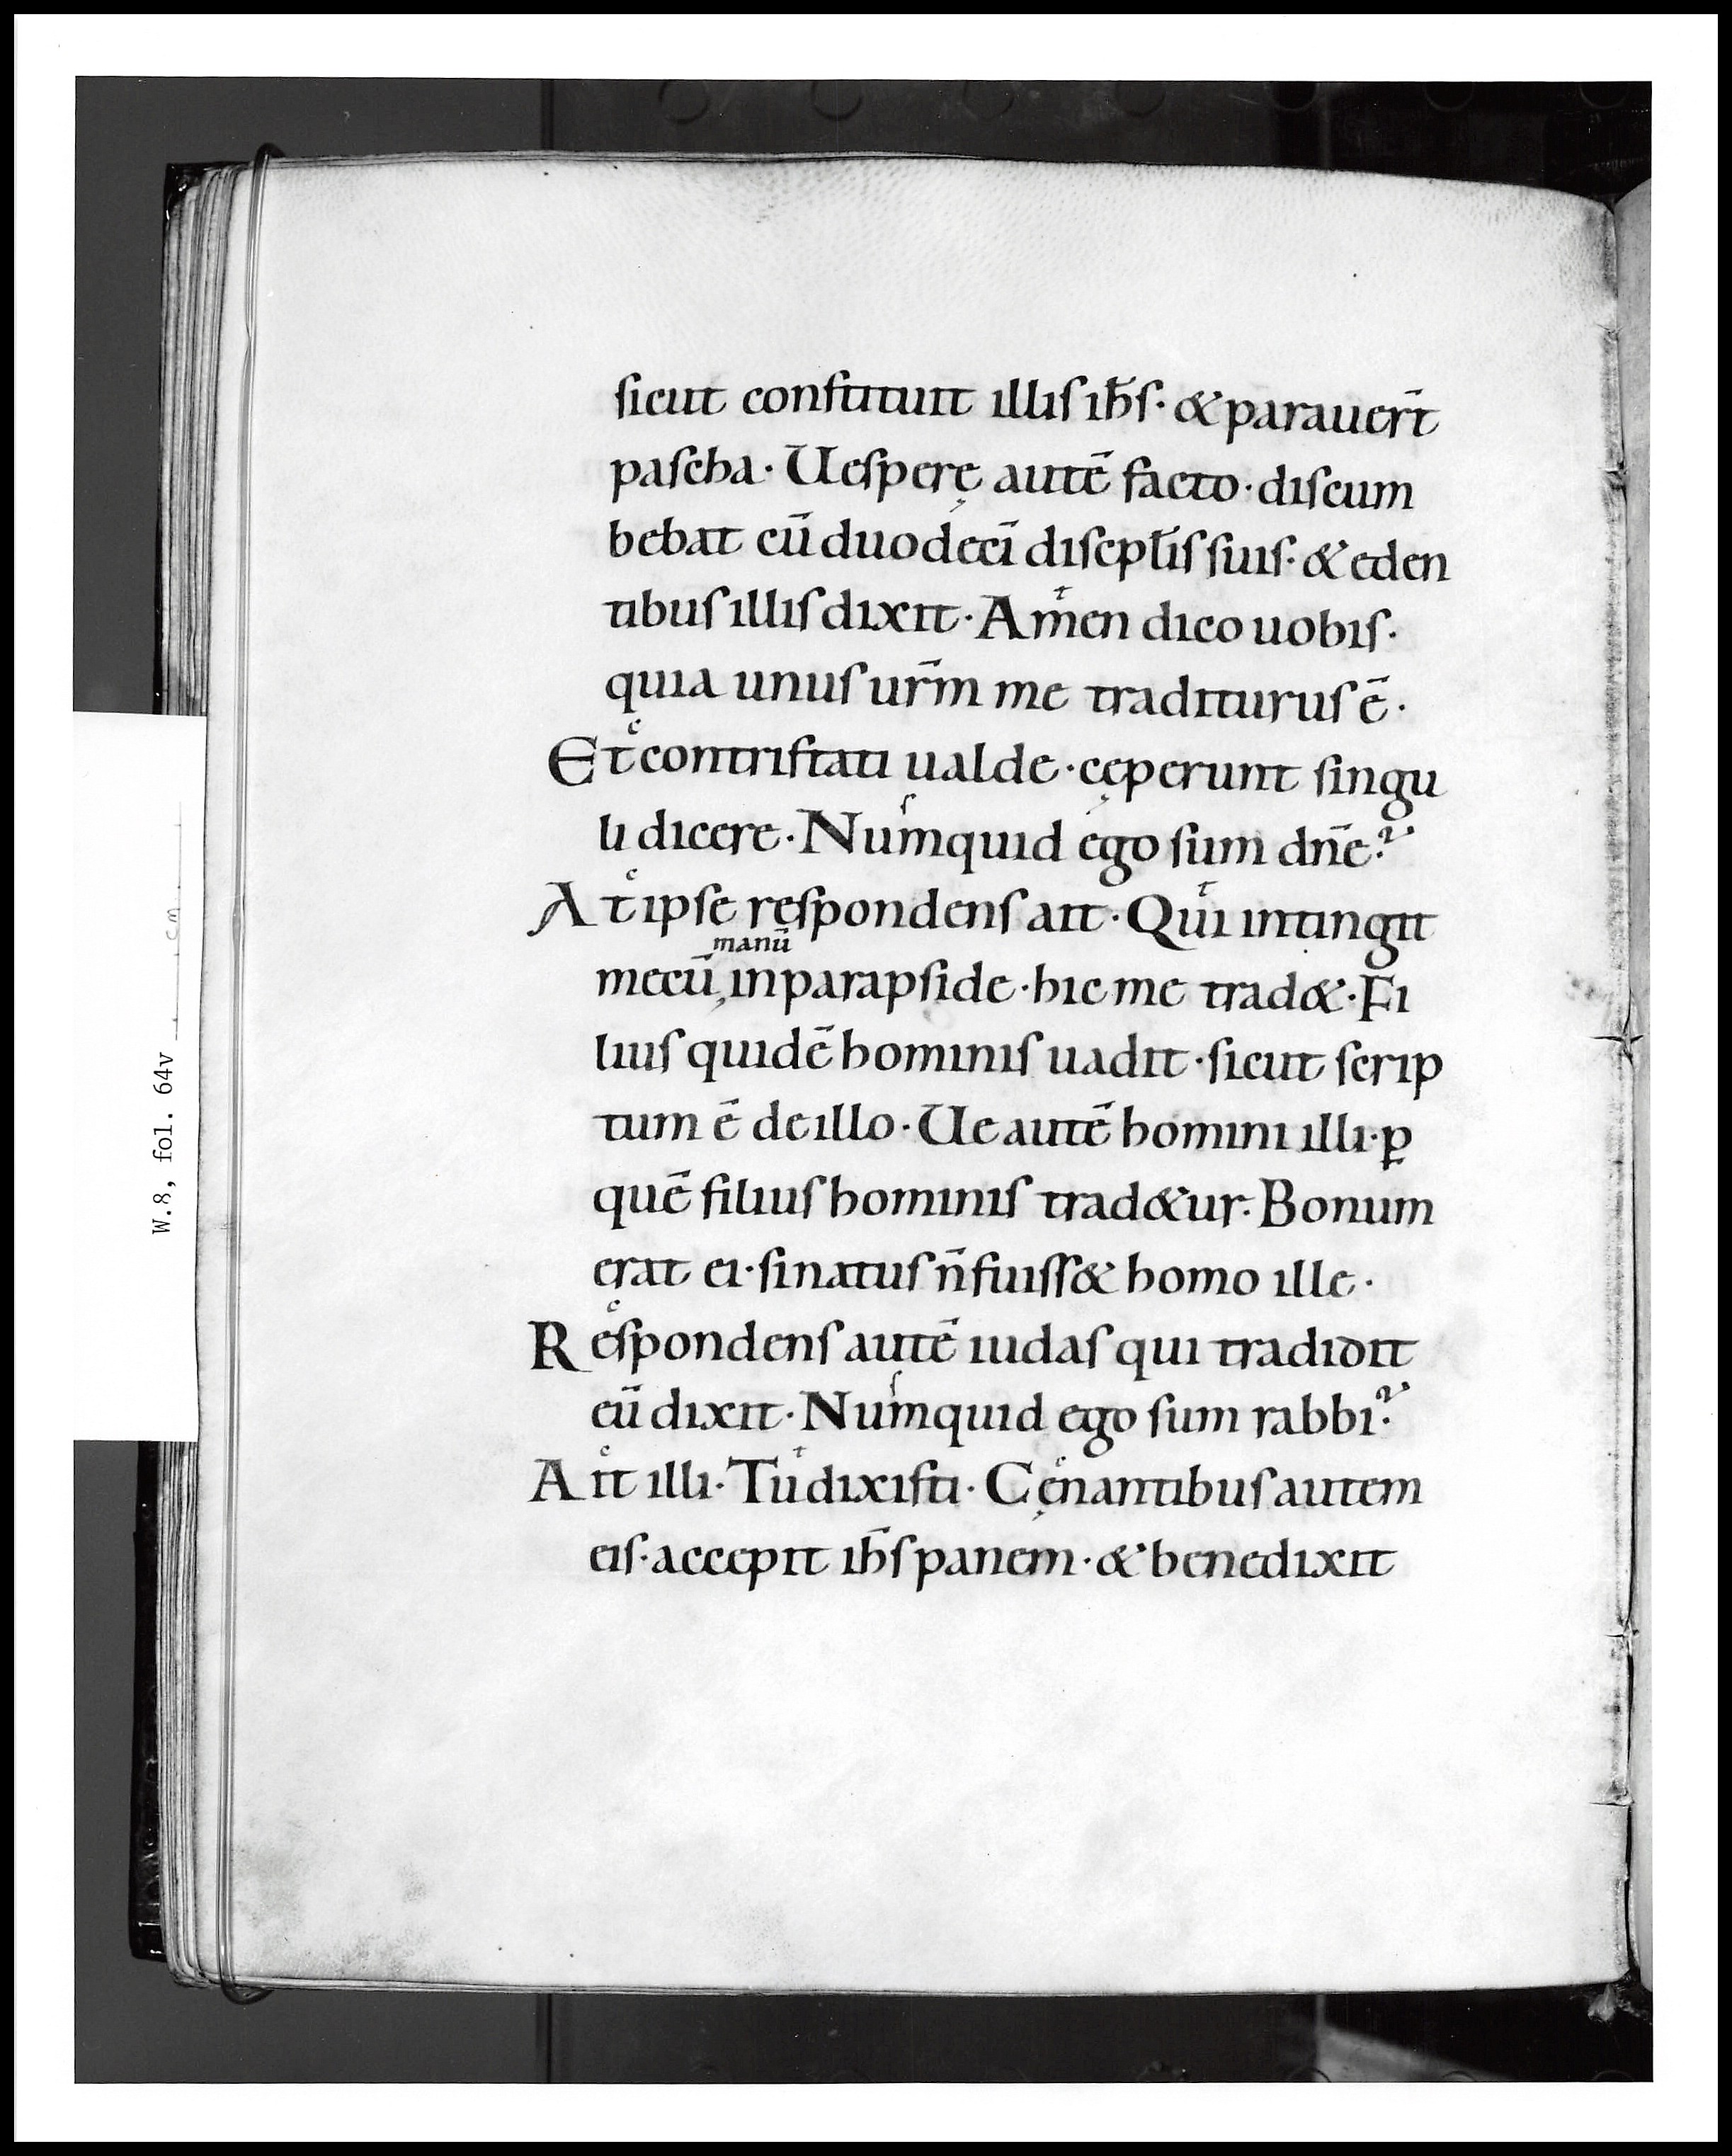 sicut constituit illis ihs̄· & parauer̄t
pascha· Uesperę autē facto· discum
bebat cū duodecī discipl̄is suis· & eden
tibus illis dixit· Am̄en dico uobis·
quia unus ur̄m me traditurus ē·
Et contristati ualde· cęperunt singu
li dicere· Numquid ego sum dn̄e?
At ipse respondens ait· Qui intingit
manū
mecū, in parapside· hic me trad&· Fi
lius quidē hominis uadit· sicut scrip
tum ē de illo· Ue autē homini illi· ꝑ
quē filius hominis trad&ur· Bonum
erat ei· si natus n̄ fuiss& homo ille·
Respondens autē iudas qui tradidit
eū dixit· Numquid ego sum rabbi?
Ait illi· Tu dixisti· Cęnantibus autem
eis· accepit ihs̄ panem· & benedixit
W.8, fol. 64v
cm